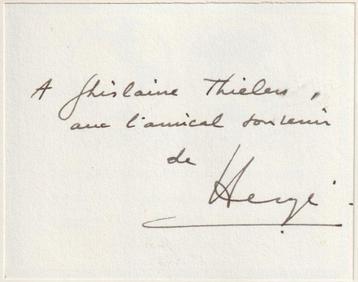 A Ghislaine Thielen,
avec l'amical souvenir
de
Hergé.